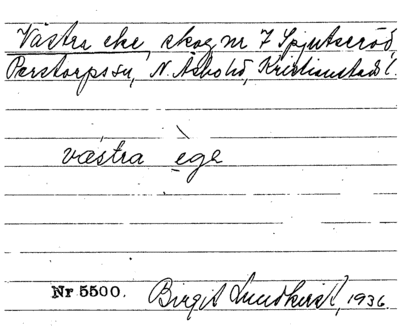 Västra eke, skog nr 7 Spjutseröd,
Perstorps sn, N. Åsbo hd, Kristianstads l.
västra ège
Nr 5500. Birgit Lundkvist, 1936.